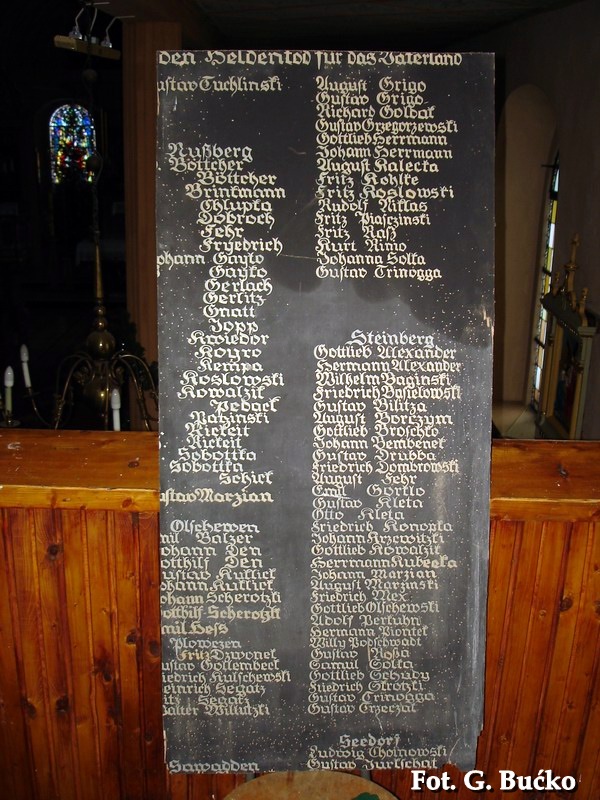 den Heldentod für das Vaterland
ustav Tuchlinski
Nußberg
Böttcher
Böttcher
Brinkmann
Chlupka
Dobroch
Fehr
Fryedrich
ohann Gaylo
Gayko
Gerlach
Gerlitz
Gnatt
Jopp
Kwiedor
Koyro
Kempa
Koslowski
Kowalzik
Pedack
Patzinski
Rickeit
Rickeit
Sobottka
Sobottka
Schick
ustav Marzian
Olschewen
mil Balzer
ohann Den
otthilf Den
ustav Kuklick
ohann Kuklick
ohann Scherotzki
otthilf Scherotzki
mil Hess
Plowczen
Fritz Dzwonek
ustav Gollembeck
riedrich Kulschewski
einrich Segatz
ritz Segatz
alter Willutzki
Sawadden
August Grigo
Gustav Grigo
Richard Goldak
Gustav Grzegorzewski
Gottlieb Herrmann
Johann Herrmann
August Kalecka
Fritz Kohlke
Fritz Koslowski
Rudolf Niklas
Fritz Piasezinski
Fritz Raß
Kurt Rimo
Johann Solka
Gustav Trinogga
Steinberg
Gottlieb Alexander
Hermann Alexander
Wilhelm Baginski
Friedrich Basielowski
Gustav Bilitza
August Borczym
Gottlieb Broschko
Johann Bembenek
Gustav Drubba
Friedrich Dombrowski
August Fehr
Emil Gorklo
Gustav Kleta
Otto Kleta
Friedrich Konopka
Johann Krzewitzki
Gottlieb Kowalzik
Herrmann Kubecka
Johann Marzian
August Marzinski
Friedrich Mex
Gottlieb Olschewski
Adolf Pertuhn
Hermann Piontek
Willy Podschwadt
Gustav Rossa
Samul Solka
Gottlieb Schady
Friedrich Skrotzki
Gustav Trinogga
Gustav Trzeczak
Seedorf
Ludwig Choinowski
Gustav Jurkschat
Fot. G. Bućko